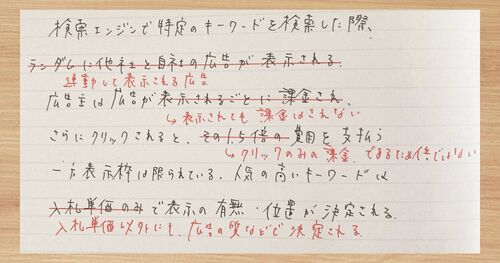 検索エンジンで特定のキーワードを検索した際、
ランダムに他社と自社の広告が表示される
連動して表示される広告
広告主は広告が表示されるごとに課金され、
→表示されても課金はされない
さらにクリックされると、その1.5倍の費用を支払う
→クリックのみの課金、であるため倍ではない
一方表示枠は限られている。人気の高いキーワードは
入札単価のみで表示の有無・位置が決定される。
入札単価以外にも、広告の質などで決定される